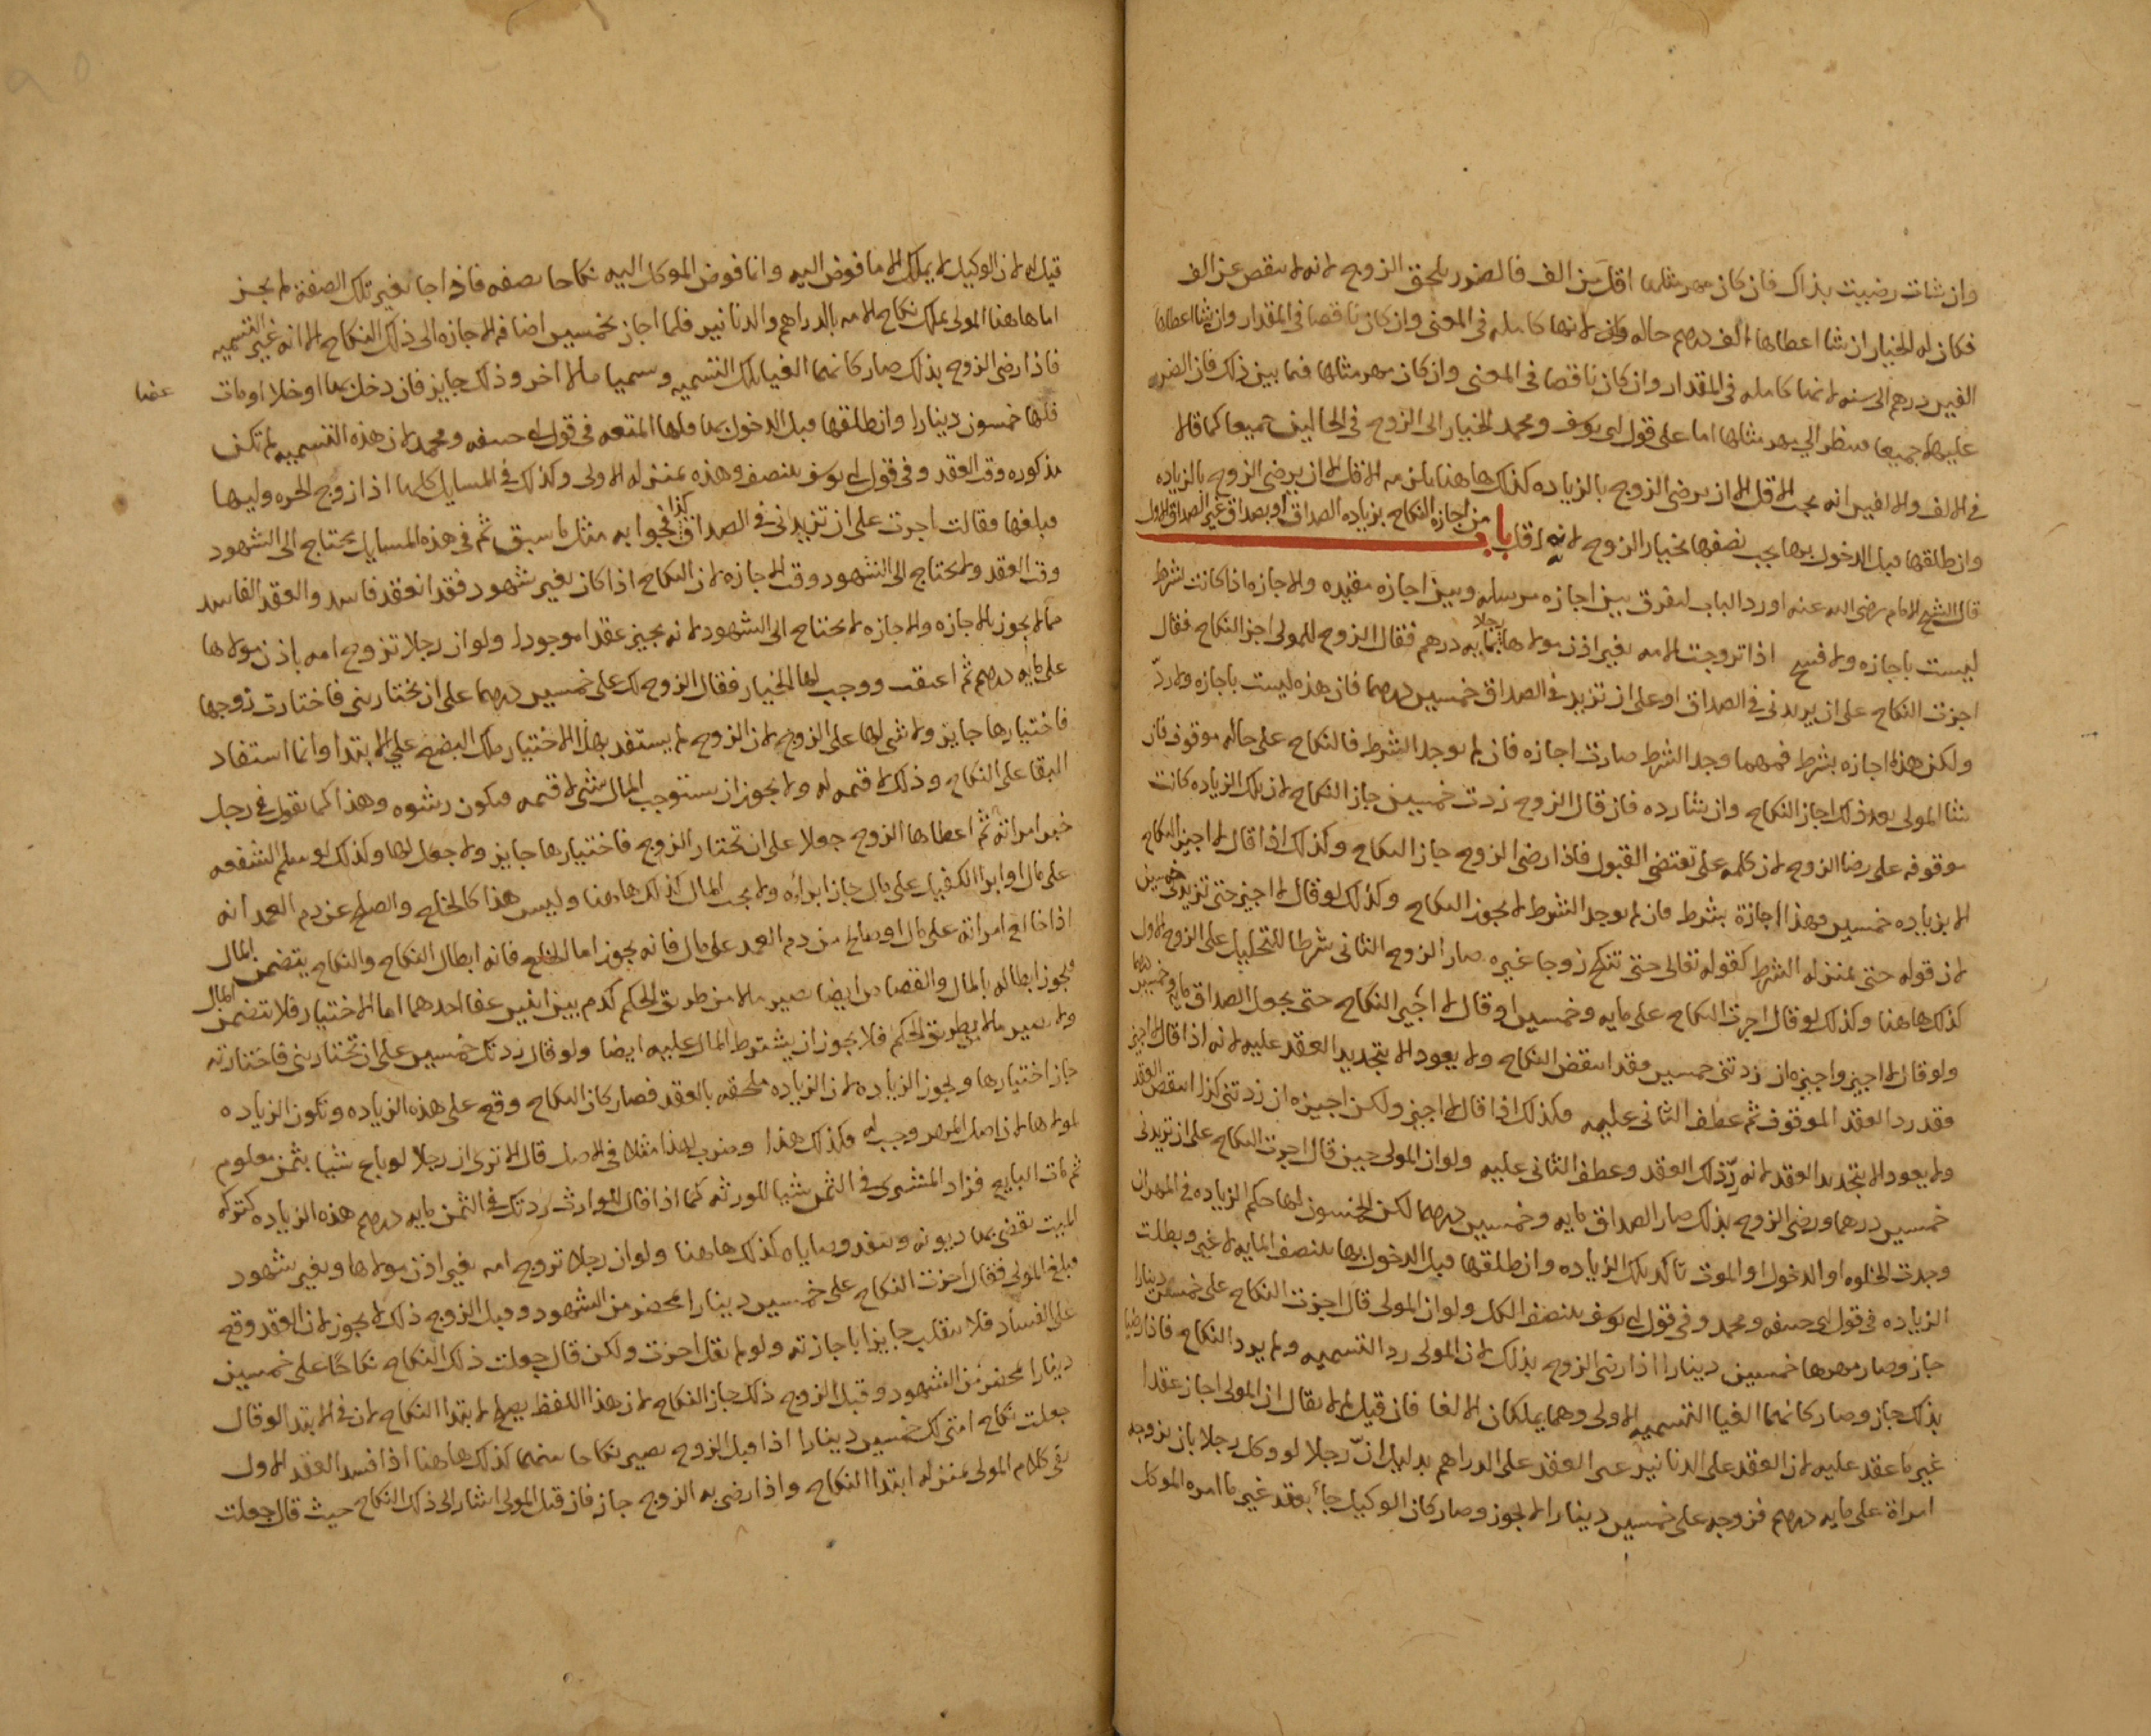 وان شات رضيت بذاك فان كان مهر مثلها اقل من الف فالضرر يلحق الزوج لانه لا ينقص عن الف
فكان له الخيار ان شا اعطاها الف درهم حاله لانها كامله في المعنى وان كان ناقصا في المقدار وان شا اعطاها
الفين درهم الى سنه لانها كامله في المقدار وان كان ناقصا في المعنى وان كان مهر مثلها فيما بين ذلك فان الضرر
عليهما جميعا فينظر الي مهر مثلها اما على قول ابى يوسف ومحمد الخيار الى الزوج في الحالين جميعا كما قالا
في الالف والالفين انه يجب الاقل الا ان يرضى الزوج بالزياده كذلك هاهنا يلزمه الاقل الا ان يرضى الزوج بالزياده
وان طلقها قبل الدخول بها يجب نصفها بخيار الزوج لانه اقل باب من اجازه النكاح بزياده الصداق او بصداق غير الصداق الاول
قال الشيخ الامام رضى الله عنه اورد الباب ليفرق بين اجازه مرسله وبين اجازه مقيده والاجازه اذا كانت بشرط
ليست باجازه ولا فسخ اذا تزوجت الامه بغير اذن مولاها رجلا بمايه درهم فقال الزوج للمولى اجز النكاح فقال
اجزت النكاح على ان يزيدنى في الصداق او على ان تزيد في الصداق خمسين درهما فان هذه ليست باجازه ولا ردّ
ولكن هذه اجازه بشرط فمهما وجد الشرط صارت اجازه فان لم يوجد الشرط فالنكاح على حاله موقوف فان
شا المولى بعد ذلك اجاز النكاح وان شا رده فان قال الزوج زدت خمسين جاز النكاح لان تلك الزياده كانت
موقوفه على رضا الزوج لان كلمه على تقتضي القبول فاذا رضى الزوج جاز النكاح وكذلك اذا قال لا اجيز النكاح
الا بزياده خمسين فهذا اجازة بشرط فان لم يوجد الشرط لا يجوز النكاح وكذلك لو قال لا اجيز حتى تزيدنى خمسين
لان قوله حتى بمنزله الشرط كقوله تعالى حتى تنكح زوجا غيره صار الزوج الثانى شرطا للتحليل على الزوج الاول
كذلك هاهنا وكذلك لو قال اجزت النكاح على مايه وخمسين او قال لا اجيز النكاح حتى يجعل الصداق مايه وخمسين درهما
ولو قال لا اجيز واجيزه ان زدتنى خمسين فقد انتقض النكاح ولا يعود الا بتجديد العقد عليه لانه اذا قال لا اجيز
فقد رد العقد الموقوف ثم عطف الثانى عليه فكذلك اذا قال لا اجيز ولكن اجيزه ان زدتنى كذا انتقض العقد
ولا يعود الا بتجديد العقد لانه ردّ ذلك العقد وعطف الثانى عليه ولو ان المولى حين قال اجزت النكاح على ان تزيدنى
خمسين درهما ورضى الزوج بذلك صار الصداق مايه وخمسين درهما لكن الخمسون لها حكم الزياده في المهر ان
وجدت الخلوه او الدخول او الموت تاكد تلك الزياده وان طلقها قبل الدخول بها يتنصف المايه لا غير وبطلت
الزياده في قول ابى حنيفه ومحمد وفي قول ابى يوسف يتنصف الكل ولو ان المولى قال اجزت النكاح على خمسين دينارا
جاز وصار مهرها خمسين دينارا اذا رضى الزوج بذلك لان المولى رد التسميه ولم يرد النكاح فاذا رضيا
بذلك جاز وصار كانهما الغيا التسميه الاولى وهما يملكان الالغا فان قيل لم لا يقال ان المولى اجاز عقدا
غير ما عقد عليه لان العقد على الدنانير غير العقد على الدراهم بدليل انّ رجلا لو وكل رجلا بان يزوجه
امراة على مايه درهم فزوجه على خمسين دينارا لا يجوز وصار كان الوكيل جاء بعقد غير ما امره الموكل
قيل له لان الوكيل لا يملك الا ما فوض اليه وانما فوض الموكل اليه نكاحا بصفه فاذا جا بغير تلك الصفة لم يجز
اما هاهنا المولى يملك نكاح الامه بالدراهم والدنانير فلما اجاز بخمسين اضاف الاجازه الى ذلك النكاح الا انه غير التسميه
فاذا رضى الزوج بذلك صار كانهما الغيا تلك التسميه وسميا مالا اخر وذلك جايز فان دخل بها او خلا او مات عنها
فلها خمسون دينارا وان طلقها قبل الدخول بها فلها المتعه في قول ابى حنيفه ومحمد لان هذه التسميه لم تكن
مذكوره وقت العقد وفي قول ابى يوسف يتنصف وهذه بمنزله الاولى وكذلك في المسايل كلها اذا زوج الحره وليها
فبلغها فقالت اجزت على ان تزيدنى في الصداق كذا فجوابه مثل ما سبق ثم في هذه المسايل يحتاج الى الشهود
وقت العقد ولا يحتاج الى الشهود وقت الاجازه لان النكاح اذا كان بغير شهود فقد انعقد فاسدا والعقد الفاسد
مما لا يجوز بالاجازه والاجازه لا يحتاج الى الشهود لانه يجيز عقدا موجودا ولو ان رجلا تزوج امه باذن مولاها
على مايه درهم ثم اعتقت ووجب لها الخيار فقال الزوج لك على خمسين درهما على ان تختارينى فاختارت زوجها
فاختيارها جايز ولا شى لها على الزوج لان الزوج لم يستفد بهذا الاختيار ملك البضع علي الابتدا وانما استفاد
البقا على النكاح وذلك لا قيمه له ولا يجوز ان يستوجب المال بشى لا قيمه فيكون رشوه وهذا كما نقول في رجل
خير امراته ثم اعطاها الزوج جعلا على ان تختار الزوج فاختيارها جايز ولا جعل لها وكذلك لو سلم الشفعه
على مال او ابرا الكفيل على مال جاز ابراؤه ولا يجب المال كذلك هاهنا وليس هذا كالخلع والصلح عن دم العمد انه
اذا خالع امراته على مال او صالح من دم العمد على مال فانه يجوز اما الخلع فانه ابطال النكاح والنكاح يتضمن المال
فجوز ابطاله بالمال والقصاص ايضا يصير مالا من طريق الحكم كدم بين اثنين عفا احدهما اما الاختيار فلا يتضمن المال
ولا يصير مالا بطريق الحكم فلا يجوز ان يشترط المال عليه ايضا ولو قال زدتك خمسين على ان تختارينى فاختارته
جاز اختيارها ويجوز الزياده لان الزياده ملحقه بالعقد فصار كان النكاح وقع على هذه الزياده وتكون الزياده
لمولاها لان اصل المهر وجب له فكذلك هذا وضرب لهذا مثلا في الاصل قال الا ترى ان رجلا لو باع شيا بثمن معلوم
ثم مات البايع فزاد المشترى في الثمن شيا للورثه كما اذا قال للوارث زدتك في الثمن مايه درهم هذه الزياده كتركه
الميت يقضى بها ديونه وينفذ وصاياه كذلك هاهنا ولو ان رجلا تزوج امه بغير اذن مولاها وبغير شهود
فبلغ المولى فقال اجزت النكاح على خمسين دينارا بمحضر من الشهود وقبل الزوج ذلك لا يجوز لان العقد وقع
على الفساد فلا ينقلب جايزا باجازته ولو لم يقل اجزت ولكن قال جعلت ذلك النكاح نكاحًا على خمسين
دينارا بمحضر من الشهود وقبل الزوج ذلك جاز النكاح لان هذا اللفظ يصلح لابتدا النكاح لان في الابتدا لو قال
جعلت نكاح امتى لك خمسين دينارا اذا قبل الزوج يصير نكاحا بينهما كذلك هاهنا اذا فسد العقد الاول
بقى كلام المولى بمنزله ابتدا النكاح واذا رضى به الزوج جاز فان قيل المولى اشار الى ذلك النكاح حيث قال جعلت